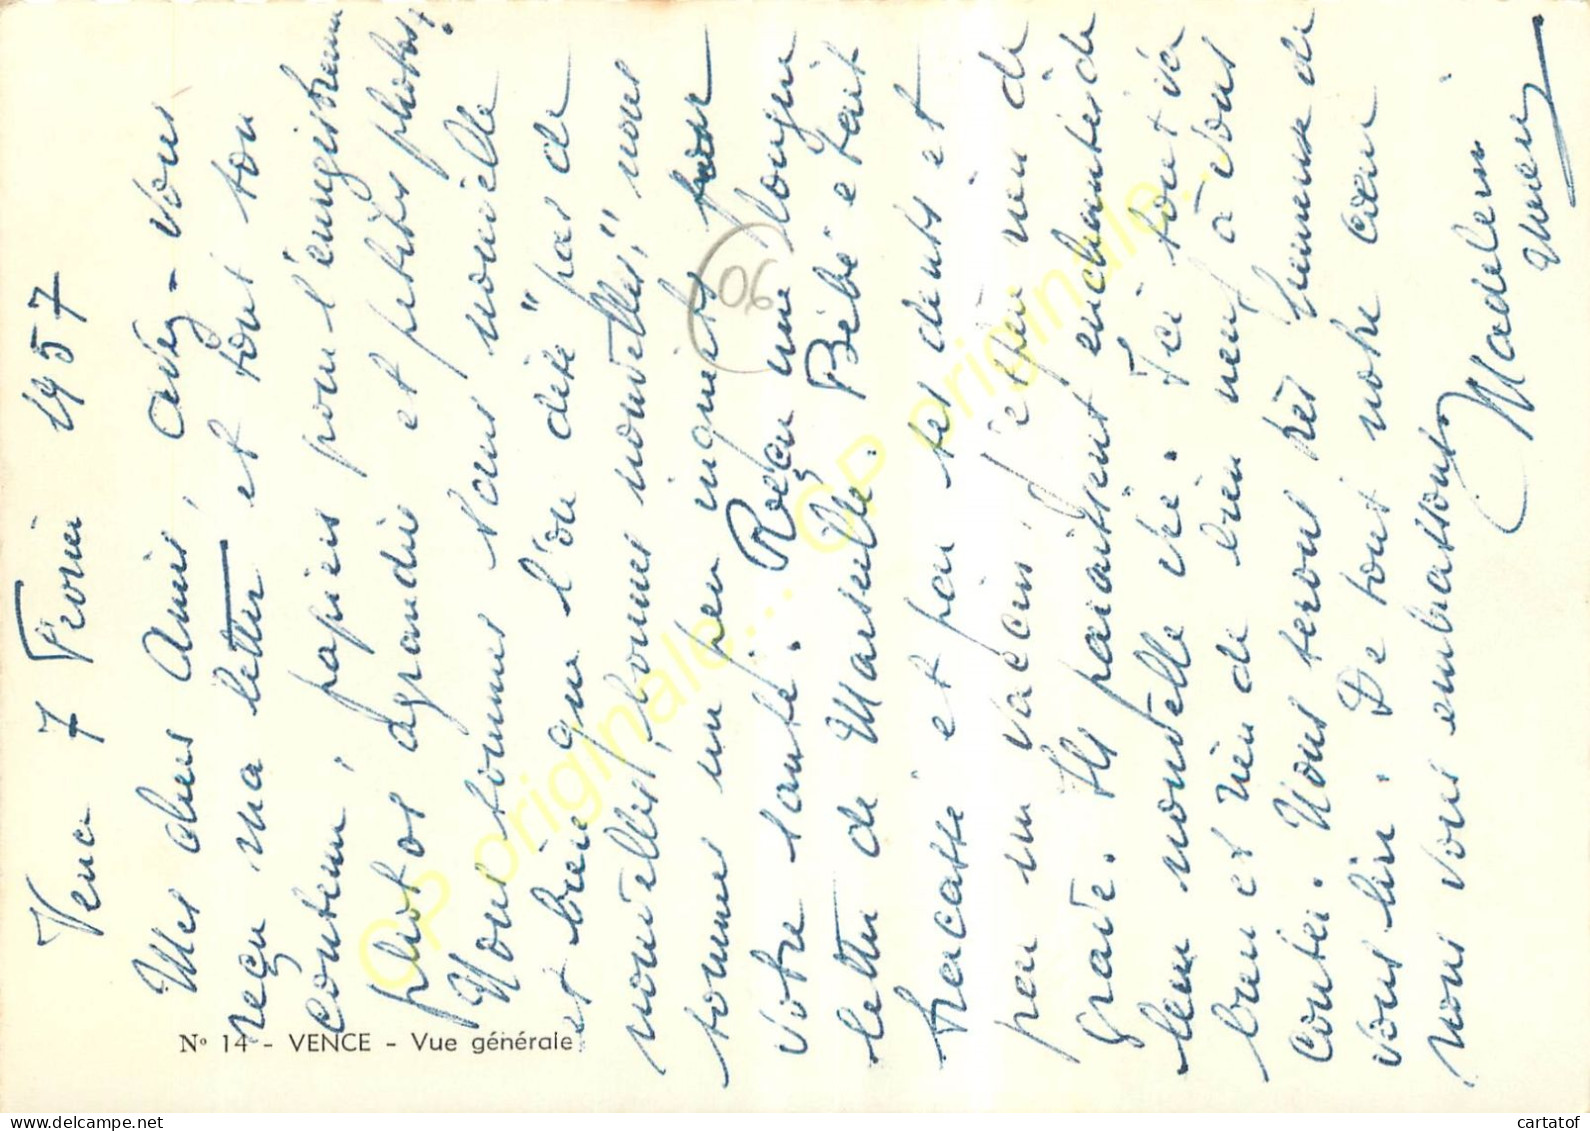 Vence 7 Février 1957
Mes chers Amis, avez-vous
reçu ma lettre et tout son
contenu, papiers pour l'enregistrement
photos agrandies et petites photos ?
Nous sommes sans nouvelle
et bien que l'on dise "pas de
nouvelles, bonnes nouvelles," nous
sommes un peu inquiets pour
votre santé. Reçu une longue
lettre de Marseille. Bébé était
tracassé et par ses dents et
par un vaccin, j'espère rien de
grave. Ils paraissent enchantés de
leur nouvelle vie. Ici tout va
bien et rien de bien neuf à vous
conter. Nous serons très heureux de
vous lire. De tout notre cœur
nous vous embrassons
Madeleine
N° 14 - VENCE - Vue générale
06
CP originale... CP originale...
cartatof